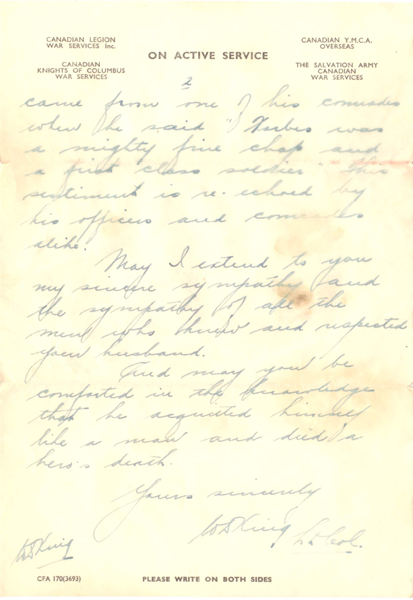 CANADIAN LEGION
WAR SERVICES Inc.
CANADIAN
KNIGHTS OF COLUMBUS
WAR SERVICES
ON ACTIVE SERVICE
CANADIAN Y.M.C.A.
OVERSEAS
THE SALVATION ARMY
CANADIAN
WAR SERVICES
2
came from one of his comrades
when he said "Forbes was
a mighty fine chap and
a first class soldier" This
sentiment is re-echoed by
his officers and comrades
alike.
May I extend to you
my sincere sympathy and
the sympathy of all the
men who knew and respected
your husband.
And may you be
comforted in the knowledge
that he acquitted himself
like a man and died a
hero's death.
Yours sincerely
WDKing Lt Col.
WDKing
CFA 170(3693)
PLEASE WRITE ON BOTH SIDES